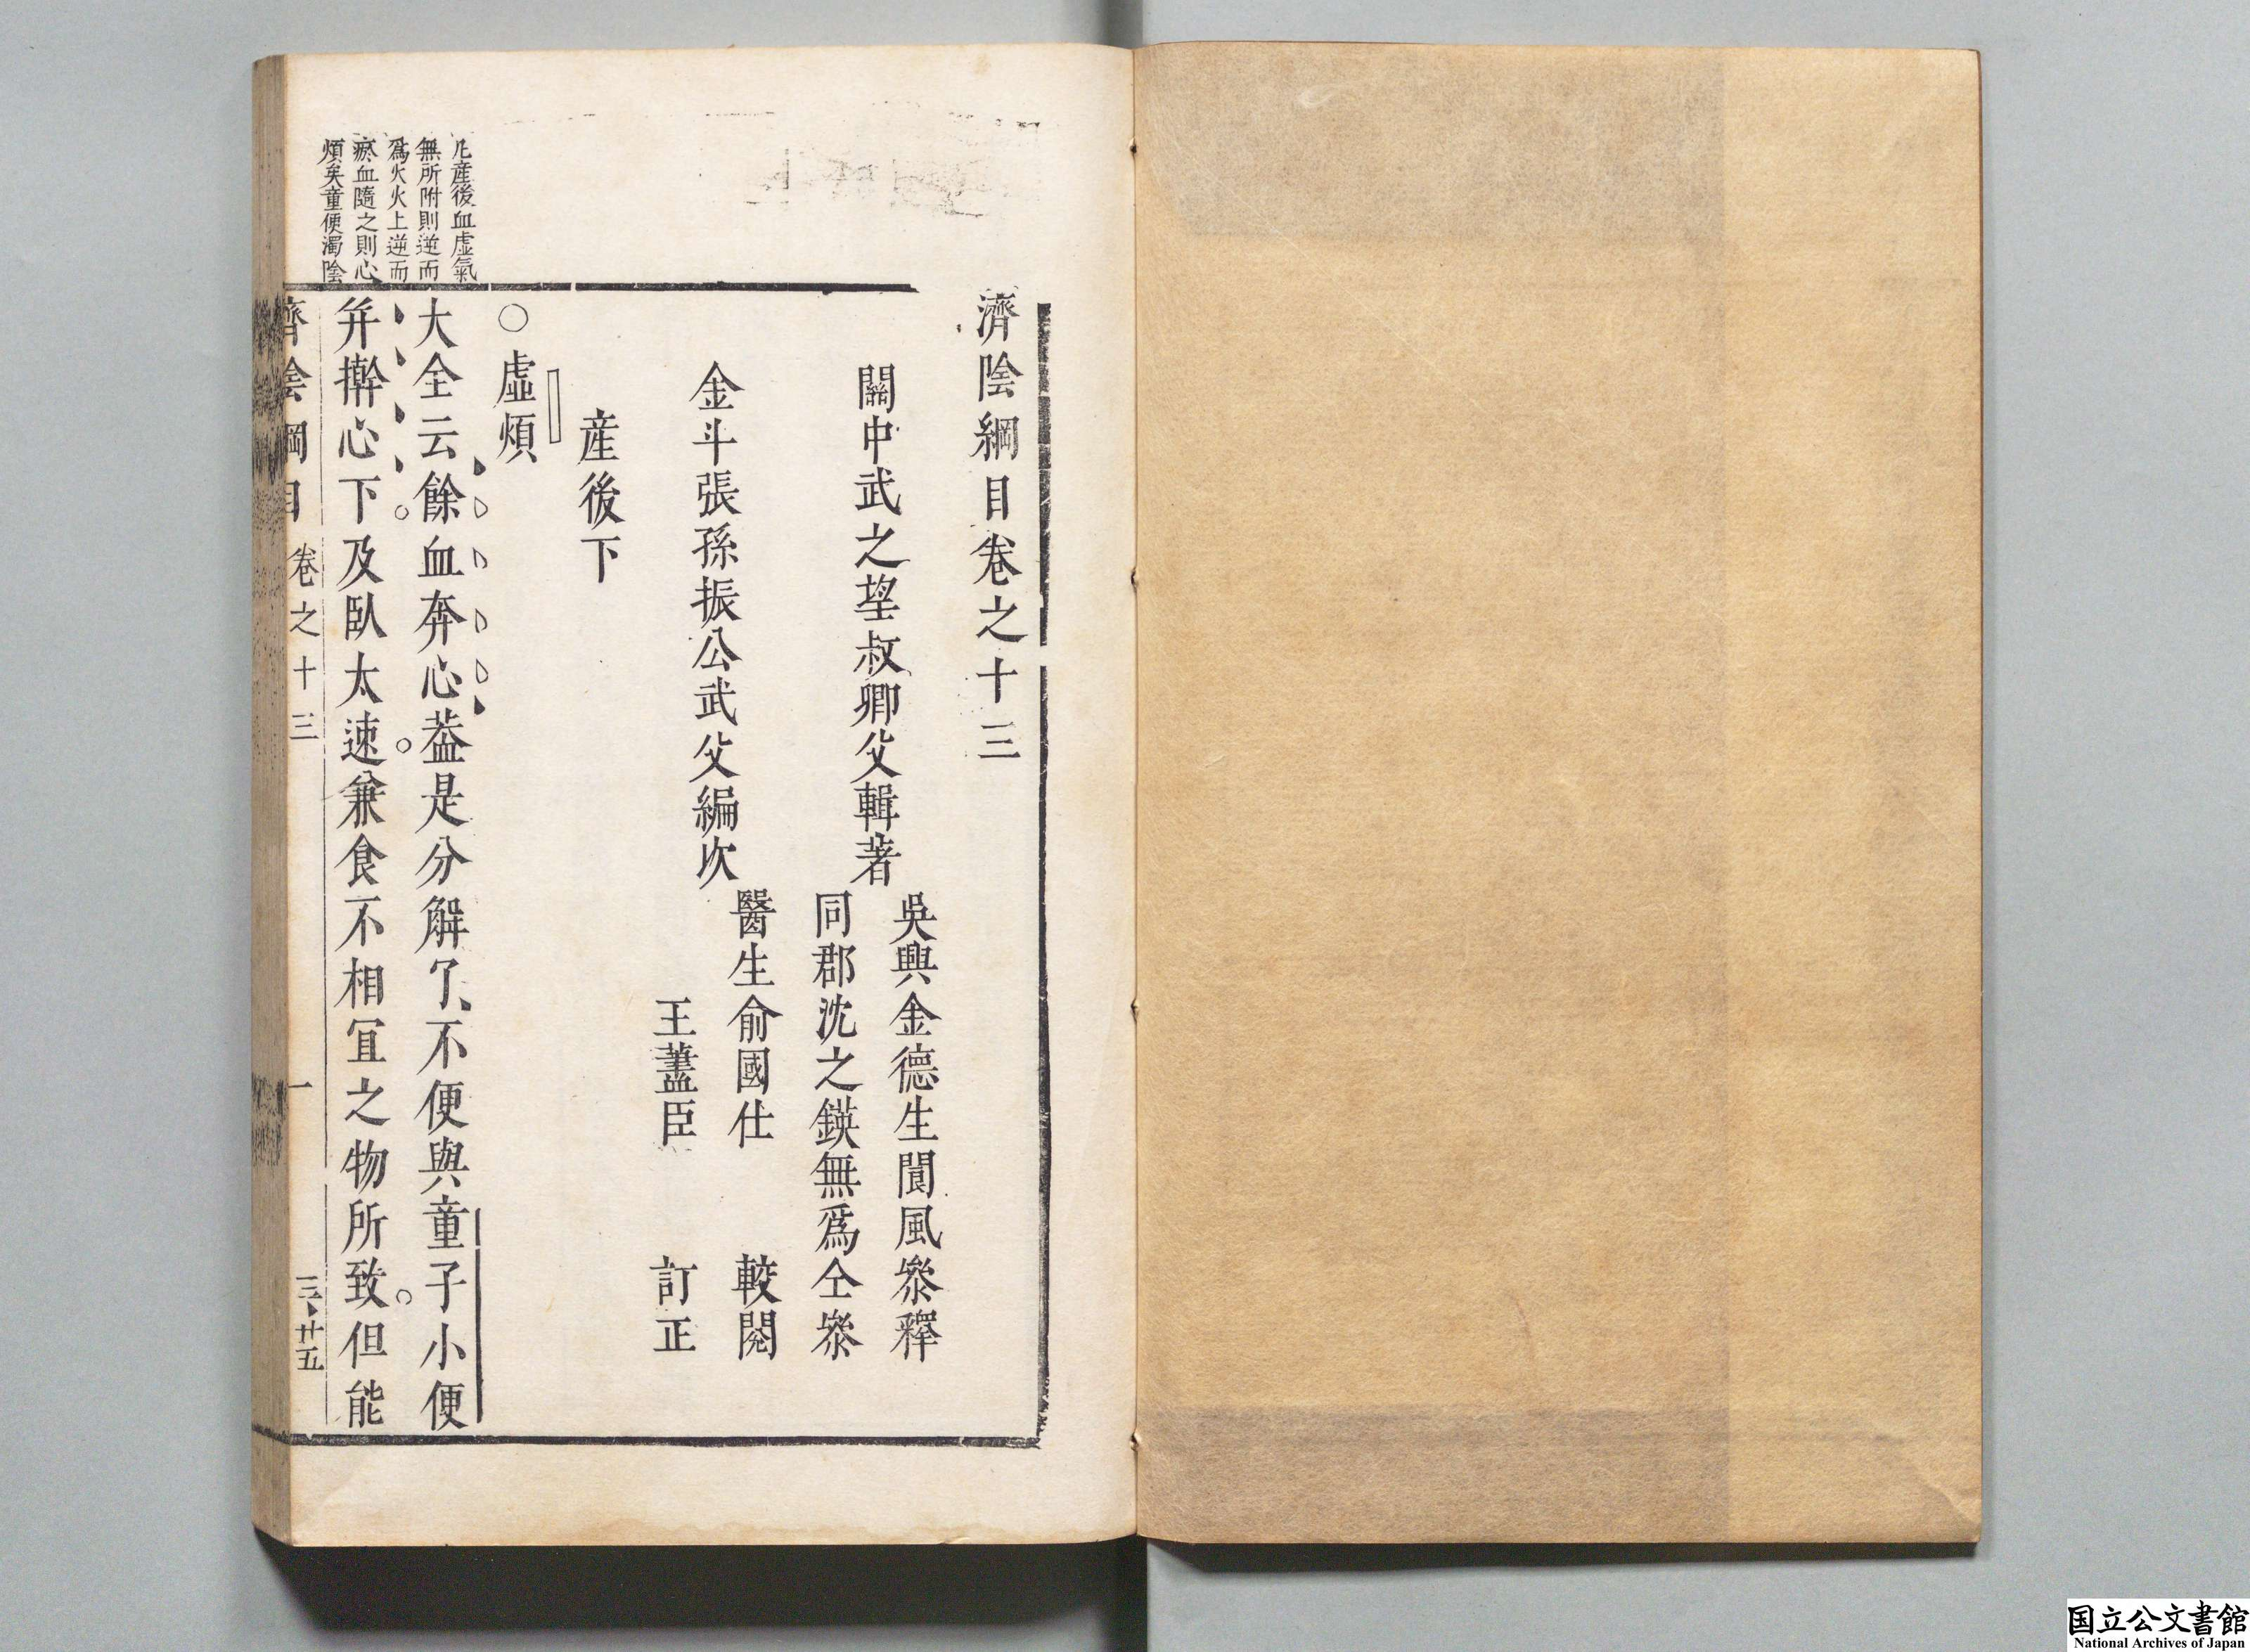 濟陰綱目卷之十三
關中武之望叔卿父輯著
吳興金德生聞風參釋
同郡沈之鍈無爲仝參
金斗張孫振公武父編次
醫生俞國仕 較閱
王藎臣 訂正
産後下
○虛煩
大全云餘血奔心葢是分解了不便與童子小便
并擀心下及臥太速兼食不相宜之物所致但能
凡産後血虛氣
無所附則逆而
爲火火上逆而
瘀血隨之則心
煩矣童便濁陰
濟陰綱目 卷之十三 一
国立公文書館
National Archives of Japan